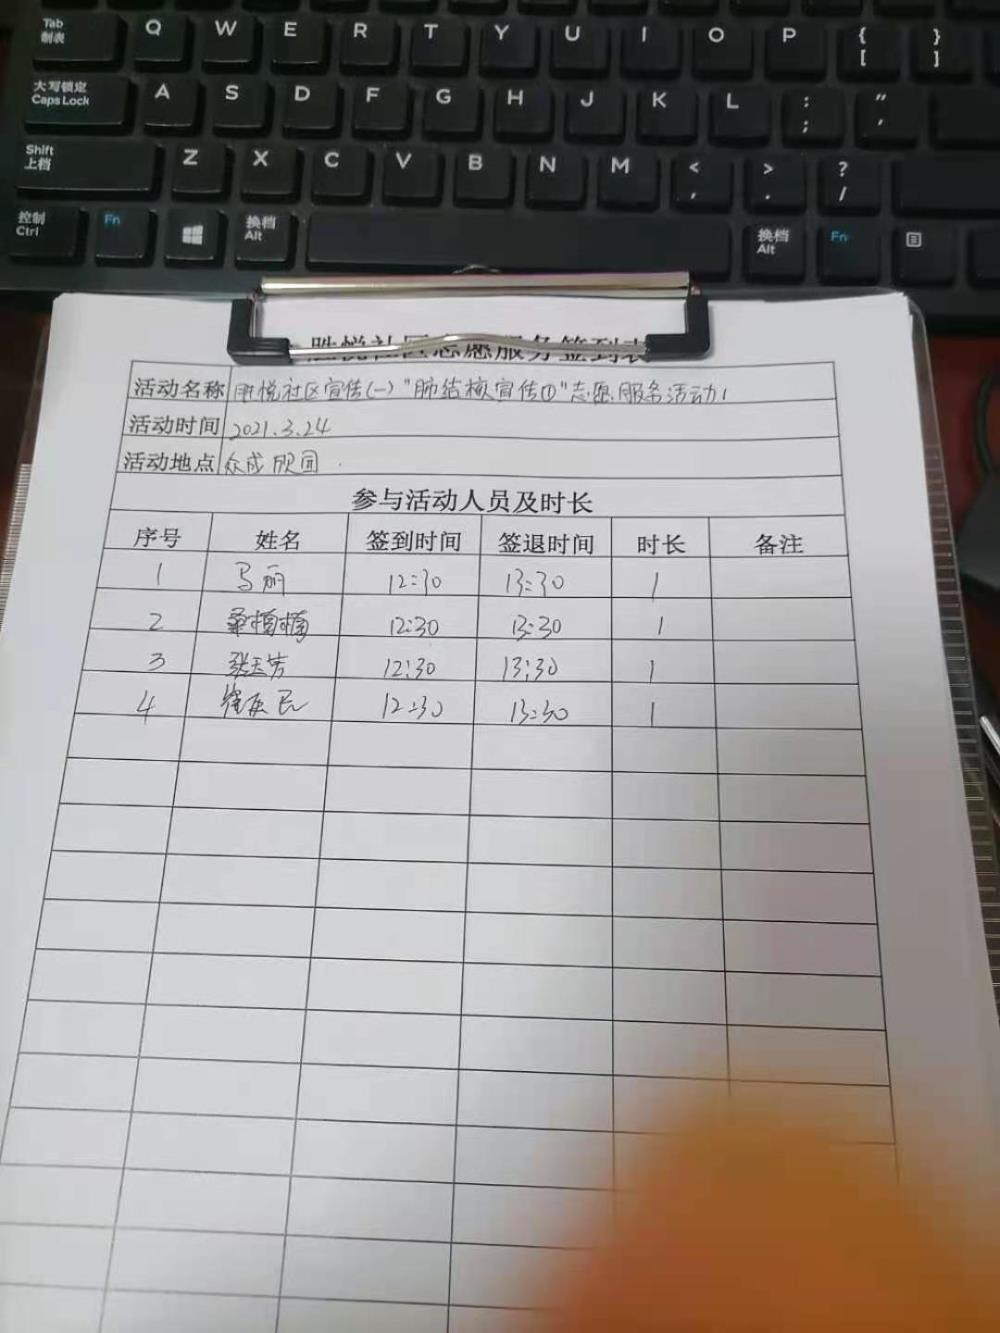 Tab Q W E R T Y U I O P { }
制表 [ ]
大写锁定 A S D F G H J K L : "
Caps Lock ; '
Shift Z X C V B N M < > ?
上档 , . /
控制 Fn 换档 换档 Fn
Ctrl Alt Alt
胜悦社区志愿服务签到表
活动名称 胜悦社区宣传(一)"肺结核宣传①"志愿服务活动1
活动时间 2021.3.24
活动地点 众成
参与活动人员及时长
序号 姓名 签到时间 签退时间 时长 备注
1 马丽 12:30 13:30 1
2 桑楠楠 12:30 13:30 1
3 张玉芳 12:30 13:30 1
4 12:30 13:30 1